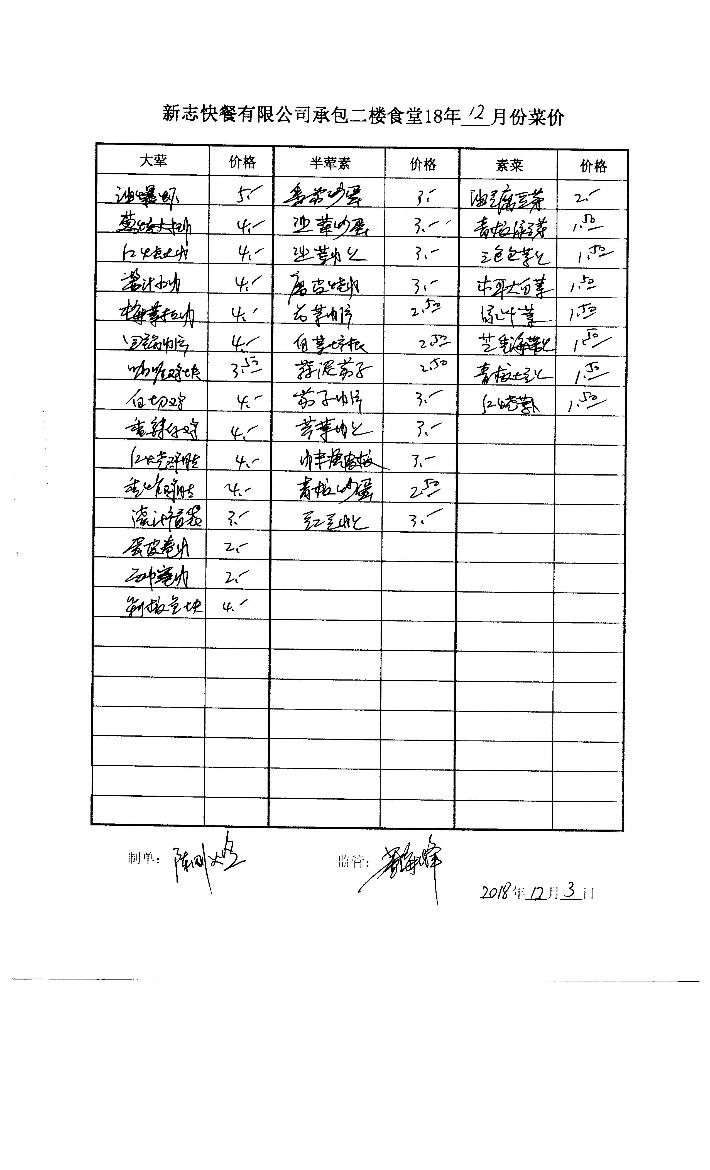 新志快餐有限公司承包二楼食堂18年12月份菜价
大荤 价格 半荤素 价格 素菜 价格
油爆虾 5.- 香菜炒蛋 3.- 油豆腐豆芽 2.-
葱烧大排 4.- 韭菜炒蛋 3.- 青椒绿豆芽 1.50
红烧大肉 4.- 韭菜肉丝 3.- 三色包菜丝 1.50
酱汁小肉 4.- 3.- 木耳大白菜 1.50
梅菜扣肉 4.- 肉片 2.50 1.50
回锅肉片 4.- 白菜 2.50 芝麻海带丝 1.50
咖喱鸡块 3.50 蒜泥茄子 2.50 青椒土豆丝 1.50
白切鸡 4.- 茄子肉片 3.- 红烧 1.50
香辣仔鸡 4.- 芹菜肉丝 3.-
红烧鸡腿 4.- 3.-
4.- 青椒炒蛋 2.50
3.- 豇豆肉丝 3.-
蛋皮卷肉 2.-
2.-
剁椒鱼块 4.-
制单: 监管:
2018年12月3日